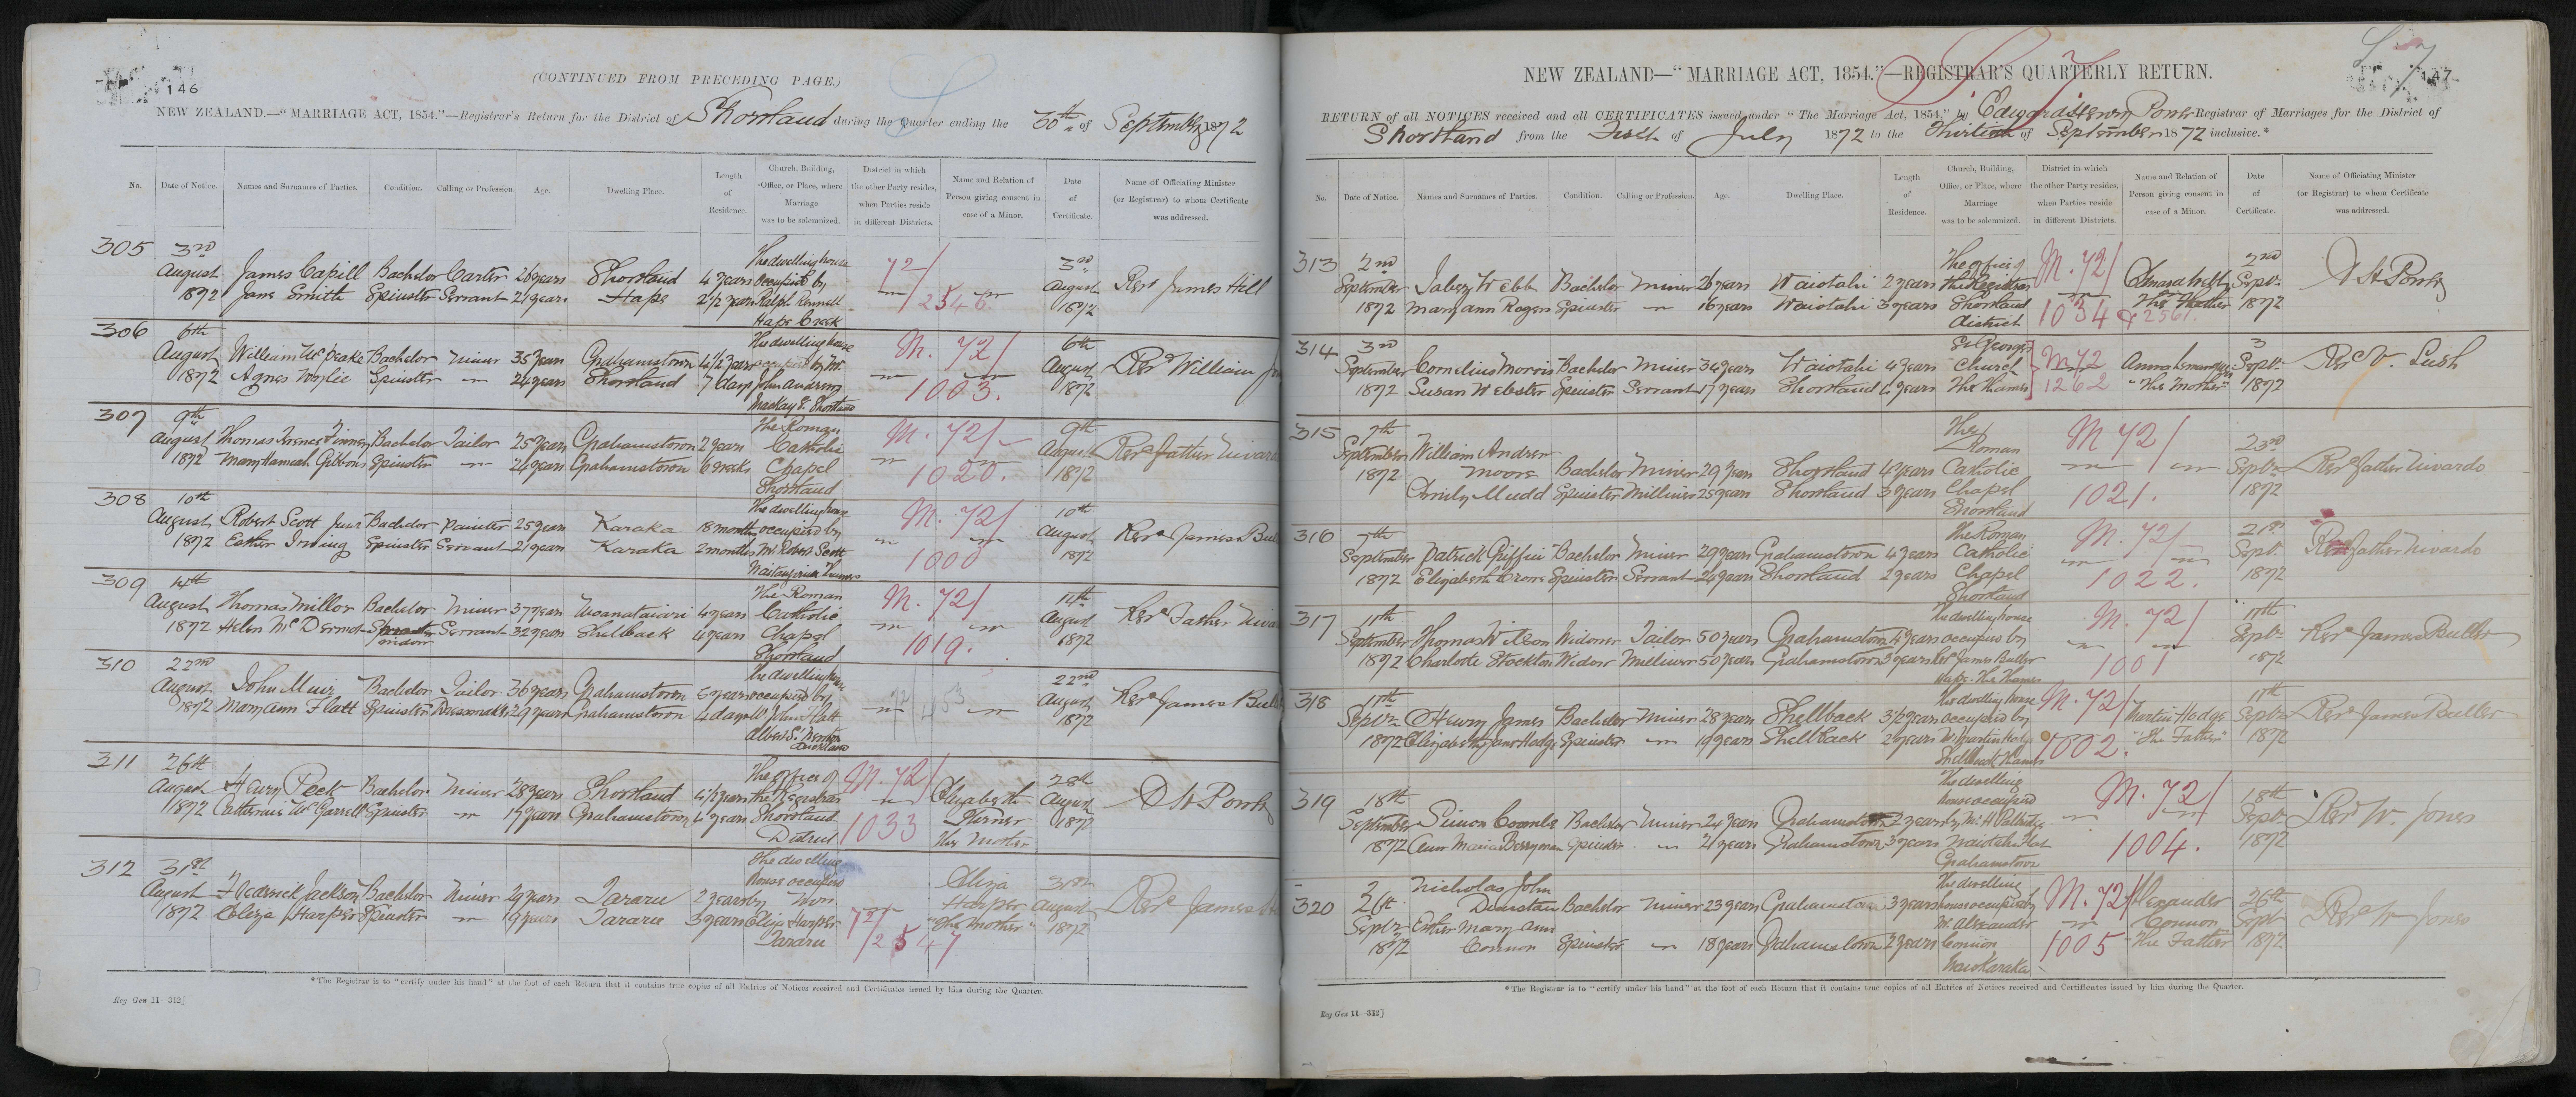 146
(CONTINUED FROM PRECEDING PAGE.)
NEW ZEALAND.—"MARRIAGE ACT, 1854."—Registrar's Return for the District of Shortland during the Quarter ending the 30th of September 1872
No. Date of Notice. Names and Surnames of Parties. Condition. Calling or Profession. Age. Dwelling Place. Length of Residence. Church, Building, Office, or Place, where Marriage was to be solemnized. District in which the other Party resides, when Parties reside in different Districts. Name and Relation of Person giving consent in case of a Minor. Date of Certificate. Name of Officiating Minister (or Registrar) to whom Certificate was addressed.
305 3rd The dwelling house 72/ 3rd
August James Capill Bachelor Carter 26 years Shortland 4 years occupied by August Revd James Hill
1872 Jane Smith Spinster Servant 21 years Hape 2 1/2 years Ralph Rennell 2546 1872
Hape Creek
306 6th The dwelling house M. 72/ 6th
August William McPeake Bachelor Miner 35 years Grahamstown 4 1/2 years occupied by Mr August Revd William
1872 Agnes Wylie Spinster 24 years Shortland 7 days John Andrew 1003. 1872
Mackay St Shortland
307 9th The Roman M. 72/ 9th
August Thomas Finney Bachelor Tailor 25 years Grahamstown 2 years Catholic August Revd Father Nivard
1872 Mary Hannah Gibbons Spinster 24 years Grahamstown 6 weeks Chapel 1020. 1872
Shortland
308 10th The dwelling house M. 72/ 10th
August Robert Scott Junr Bachelor Painter 25 years Karaka 18 months occupied by August Revd James Bul
1872 Esther Irving Spinster Servant 21 years Karaka 2 months Mr Robert Scott 1000 1872
309 14th The Roman M. 72/ 14th
August Thomas Millor Bachelor Miner 37 years Moanataiari 4 years Catholic August Revd Father Nivar
1872 Helen McDermot Spinster Servant 32 years Shellback 4 years Chapel 1019. 1872
Widow Shortland
310 22nd The dwelling house 22nd
August John Muir Bachelor Tailor 36 years Grahamstown 5 years occupied by 72/453 August Revd James Bul
1872 Mary Ann Flatt Spinster Dressmaker 29 years Grahamstown 4 days Mr John Flatt 1872
Albert St
Auckland
311 26th The office of M. 72/ 28th
August Henry Peek Bachelor Miner 28 years Shortland 4 1/2 years the Registrar Elizabeth August E H Power
1872 Catherine McGarrell Spinster 17 years Grahamstown 4 years Shortland 1033 Turner 1872
District The Mother
312 31st The dwelling
August Frederick Jackson Bachelor Miner 29 years Tararu 2 years house occupied by Mrs Eliza 31st
1872 Eliza Harper Spinster 19 years Tararu 3 years Eliza Harper 72/ Harper August Revd James
Tararu 2547 "The Mother" 1872
*The Registrar is to "certify under his hand" at the foot of each Return that it contains true copies of all Entries of Notices received and Certificates issued by him during the Quarter.
Reg Gen 11—312]
147
NEW ZEALAND—"MARRIAGE ACT, 1854."—REGISTRAR'S QUARTERLY RETURN.
RETURN of all NOTICES received and all CERTIFICATES issued under "The Marriage Act, 1854," by Edward Henry Power Registrar of Marriages for the District of
Shortland from the First of July 1872 to the Thirtieth of September 1872 inclusive.*
No. Date of Notice. Names and Surnames of Parties. Condition. Calling or Profession. Age. Dwelling Place. Length of Residence. Church, Building, Office, or Place, where Marriage was to be solemnized. District in which the other Party resides, when Parties reside in different Districts. Name and Relation of Person giving consent in case of a Minor. Date of Certificate. Name of Officiating Minister (or Registrar) to whom Certificate was addressed.
313 2nd The office of M. 72/ 2nd
September Jabez Webb Bachelor Miner 26 years Waiotahi 2 years the Registrar Sept. E H Power
1872 Mary Ann Rogers Spinster 16 years Waiotahi 3 years Shortland 1034 & 2561. The Father 1872
District
314 3rd St Georges M 72 3
September Cornelius Morris Bachelor Miner 34 years Waiotahi 4 years Church Sept. Rev V. Lush
1872 Susan Webster Spinster Servant 17 years Shortland 4 years The Thames 1262 "The Mother" 1872
315 7th The M 72/ 23rd
September William Andrew Roman
1872 Moore Bachelor Miner 29 years Shortland 4 years Catholic Sept. Revd Father Nivardo
Emily Mudd Spinster Milliner 25 years Shortland 3 years Chapel 1021. 1872
Shortland
316 7th The Roman M. 72/ 21st
September Patrick Griffin Bachelor Miner 29 years Grahamstown 4 years Catholic Sept. Revd Father Nivardo
1872 Elizabeth Crone Spinster Servant 24 years Shortland 2 years Chapel 1022. 1872
Shortland
317 11th The dwelling house M. 72/ 11th
September Thomas Wilson Widower Tailor 50 years Grahamstown 4 years occupied by Sept. Revd James Buller
1872 Charlotte Stockton Widow Milliner 50 years Grahamstown 3 years Revd James Buller 1001 1872
Hape The Thames
318 11th The dwelling house M. 72/ 11th
Septr Henry James Bachelor Miner 28 years Shellback 3 1/2 years occupied by Martin Hodge Septr Revd James Buller
1872 Elizabeth Jane Hodge Spinster 19 years Shellback 2 years Mr Martin Hodge 1002. "The Father" 1872
Shellback Thames
319 18th The dwelling M. 72/ 18th
September Simon Coombe Bachelor Miner 24 years Grahamstown 2 years house occupied by Mr Sept. Revd W. Jones
1872 Maria Berryman Spinster 21 years Grahamstown 3 years Waiotahi Flat 1004. 1872
Grahamstown
320 26th Nicholas John The dwelling M. 72/ Alexander 26th
Septr Dunstan Bachelor Miner 23 years Grahamstown 3 years house occupied by Connon Sept Revd W Jones
1872 Esther Mary Ann Mr Alexander 1005 The Father 1872
Connon Spinster 18 years Grahamstown 2 years Connon
Karaka
*The Registrar is to "certify under his hand" at the foot of each Return that it contains true copies of all Entries of Notices received and Certificates issued by him during the Quarter.
Reg Gen 11—312]